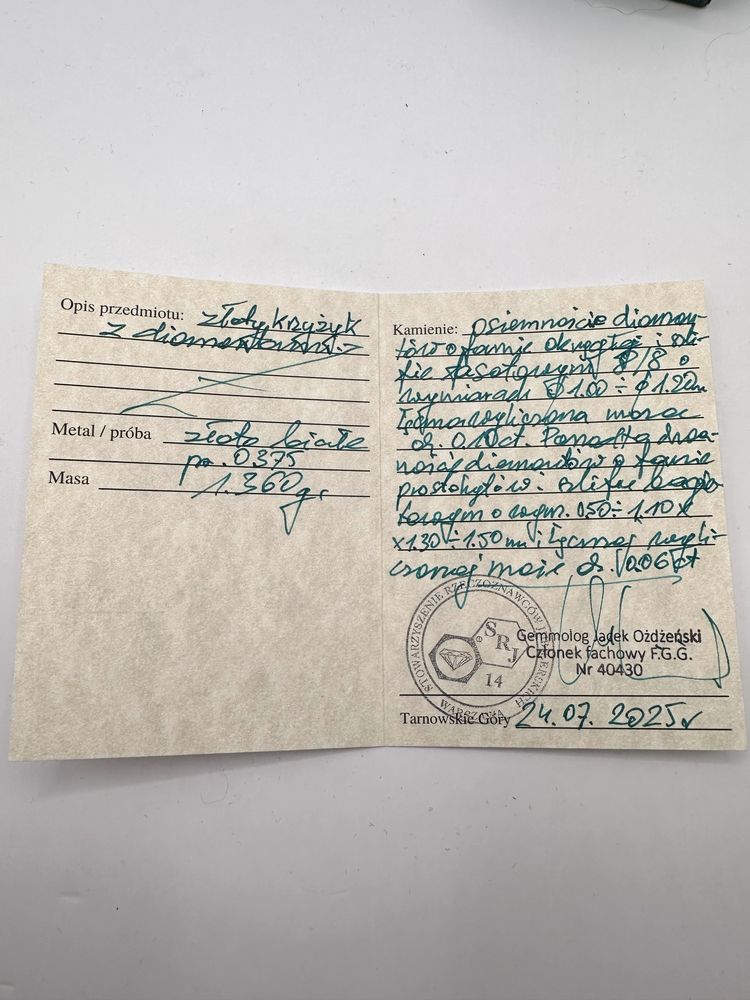 Opis przedmiotu: złoty krzyżyk
z diamentami.
Metal / próba złoto białe
pr. 0.375
Masa 1.360 gr
Kamienie: osiemnaście diamen-
tów o formie okrągłej i szli-
fie fasetowym 8/8 o
wymiarach Ø 1.00 ÷ Ø 1.20m
Łączna wyliczona masa
ok. 0.10ct. Ponadto dwa-
naście diamentów o formie
prostokątów i szlifie bagie-
towym o wym. 0.50 ÷ 1.10 x
x 1.30 ÷ 1.50 mm i łącznej wyli-
czonej masie ok. 0.06 ct
STOWARZYSZENIE RZECZOZNAWCÓW JUBILERSKICH
WARSZAWA
SRJ
14
Gemmolog Jacek Ożdżeński
Członek fachowy F.G.G.
Nr 40430
Tarnowskie Góry 24.07.2025r